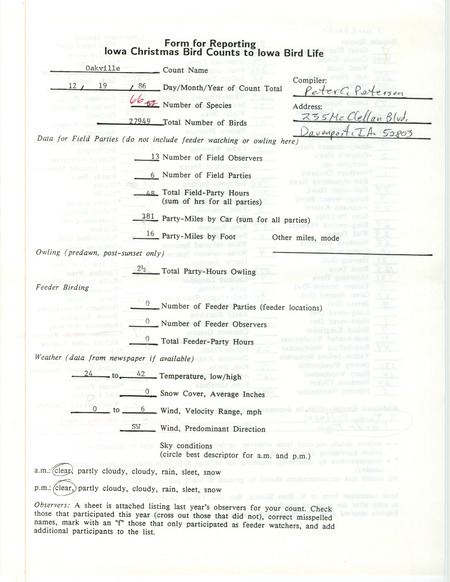 Form for Reporting
Iowa Christmas Bird Counts to Iowa Bird Life
Oakville Count Name
12 / 19 / 86 Day/Month/Year of Count Total
Compiler:
Peter C. Petersen
66 Number of Species
Address:
235 McClellan Blvd.
27949 Total Number of Birds
Davenport, IA. 52803
Data for Field Parties (do not include feeder watching or owling here)
13 Number of Field Observers
6 Number of Field Parties
48 Total Field-Party Hours
(sum of hrs for all parties)
381 Party-Miles by Car (sum for all parties)
16 Party-Miles by Foot Other miles, mode
Owling (predawn, post-sunset only)
2½ Total Party-Hours Owling
Feeder Birding
0 Number of Feeder Parties (feeder locations)
0 Number of Feeder Observers
0 Total Feeder-Party Hours
Weather (data from newspaper if available)
24 to 42 Temperature, low/high
0 Snow Cover, Average Inches
0 to 6 Wind, Velocity Range, mph
SW Wind, Predominant Direction
Sky conditions
(circle best descriptor for a.m. and p.m.)
a.m.: clear, partly cloudy, cloudy, rain, sleet, snow
p.m.: clear, partly cloudy, cloudy, rain, sleet, snow
Observers: A sheet is attached listing last year's observers for your count. Check
those that participated this year (cross out those that did not), correct misspelled
names, mark with an "f" those that only participated as feeder watchers, and add
additional participants to the list.